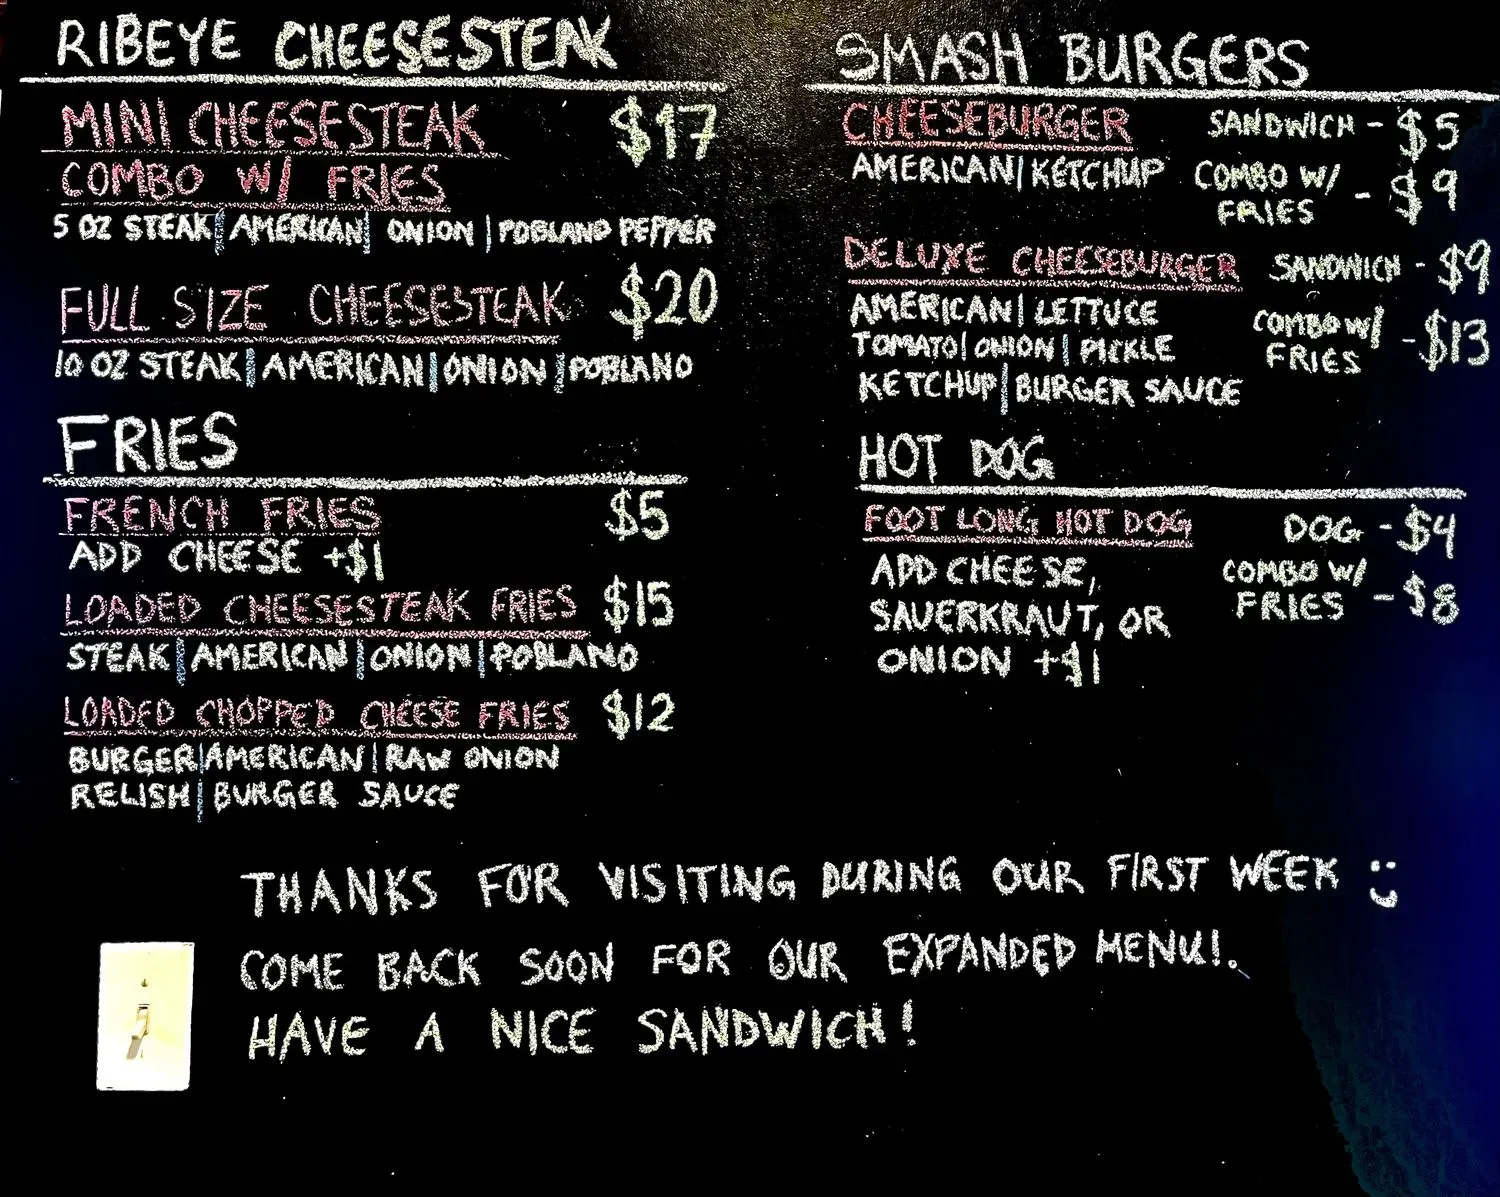 RIBEYE CHEESESTEAK
MINI CHEESESTEAK $17
COMBO W/ FRIES
5 OZ STEAK | AMERICAN | ONION | POBLANO PEPPER
FULL SIZE CHEESESTEAK $20
10 OZ STEAK | AMERICAN | ONION | POBLANO
FRIES
FRENCH FRIES $5
ADD CHEESE +$1
LOADED CHEESESTEAK FRIES $15
STEAK | AMERICAN | ONION | POBLANO
LOADED CHOPPED CHEESE FRIES $12
BURGER | AMERICAN | RAW ONION
RELISH | BURGER SAUCE
SMASH BURGERS
CHEESEBURGER SANDWICH - $5
AMERICAN | KETCHUP COMBO W/
FRIES - $9
DELUXE CHEESEBURGER SANDWICH - $9
AMERICAN | LETTUCE COMBO W/
TOMATO | ONION | PICKLE FRIES - $13
KETCHUP | BURGER SAUCE
HOT DOG
FOOT LONG HOT DOG DOG - $4
ADD CHEESE, COMBO W/
SAUERKRAUT, OR FRIES - $8
ONION +$1
THANKS FOR VISITING DURING OUR FIRST WEEK :)
COME BACK SOON FOR OUR EXPANDED MENU!.
HAVE A NICE SANDWICH!